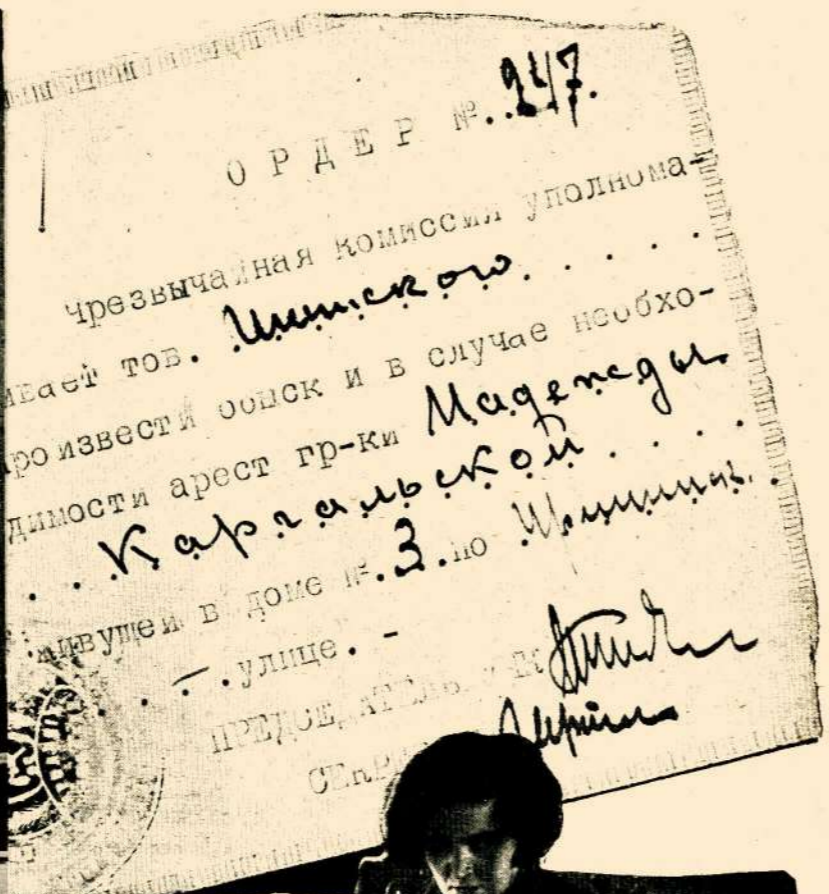 ОРДЕР №..247.
Чрезвычайная Комиссия уполнома-
ивает тов.
произвести обыск и в случае необхо-
димости арест гр-ки Надежды
. . Каргальской . . . .
живущей в доме №.3.по
. . — . улице. -
ПРЕДСЕДАТЕЛЬ
СЕКР